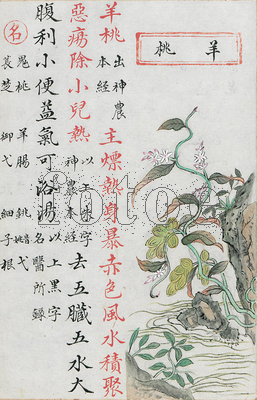 羊桃
羊桃出神農本經主熛熱身暴赤色風水積聚
惡瘍除小兒熱以上朱字神農本經去五臟五水大
腹利小便益氣可浴湯以上黑字名醫所錄
名
鬼桃 羊腸 銚弋
萇楚 御弋 細子根
foto